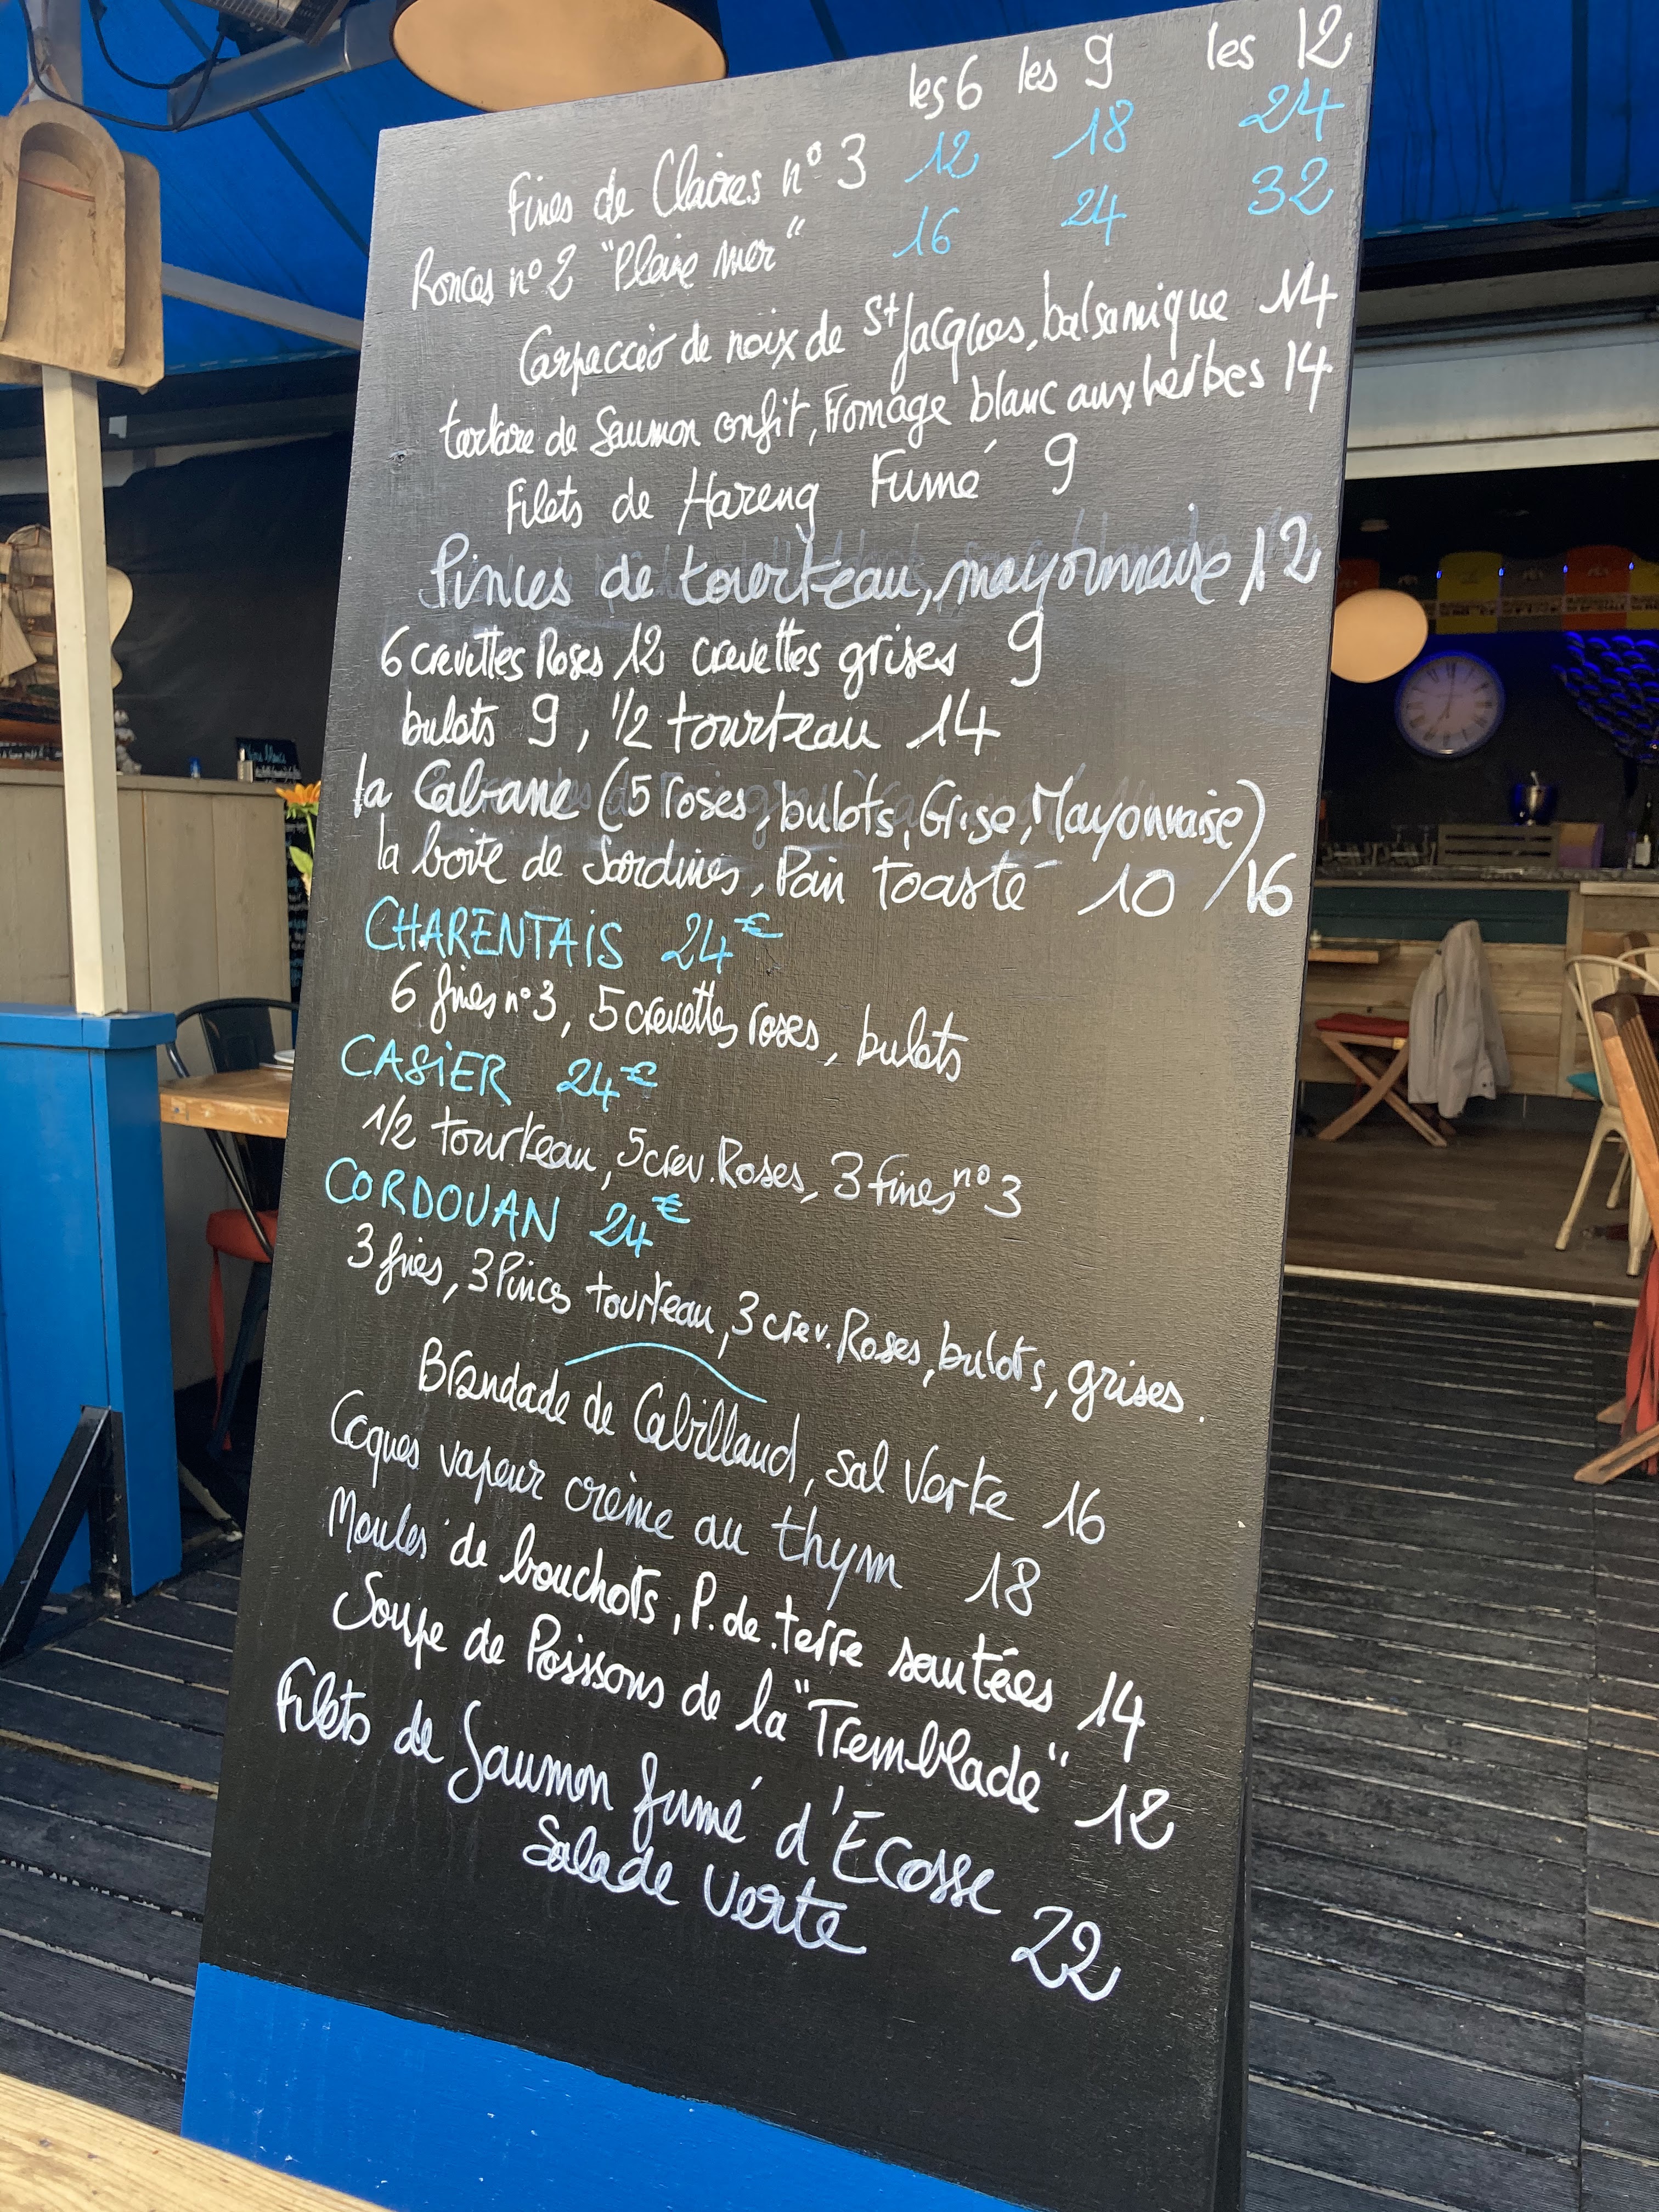 les 6 les 9 les 12
Fines de Claires n° 3 12 18 24
Ronces n° 2 "Pleine mer" 16 24 32
Carpaccio de noix de St Jacques, balsamique 14
tartare de Saumon confit, Fromage blanc aux herbes 14
Filets de Hareng Fumé 9
Pinces de tourteau, mayonnaise 12
6 crevettes Roses 12 crevettes grises 9
bulots 9, 1/2 tourteau 14
la Cabane (5 roses, bulots, Grise, Mayonnaise) 16
la boite de Sardines, Pain Toasté 10
CHARENTAIS 24€
6 fines n° 3, 5 crevettes roses, bulots
CASIER 24€
1/2 tourteau, 5 crev. Roses, 3 fines n° 3
CORDOUAN 24€
3 fines, 3 Pinces tourteau, 3 crev. Roses, bulots, grises.
Brandade de Cabillaud, sal Verte 16
Coques vapeur crème au thym 18
Moules de bouchots, P. de terre sautées 14
Soupe de Poissons de la "Tremblade" 12
Filets de Saumon fumé d'Ecosse
Salade Verte 22